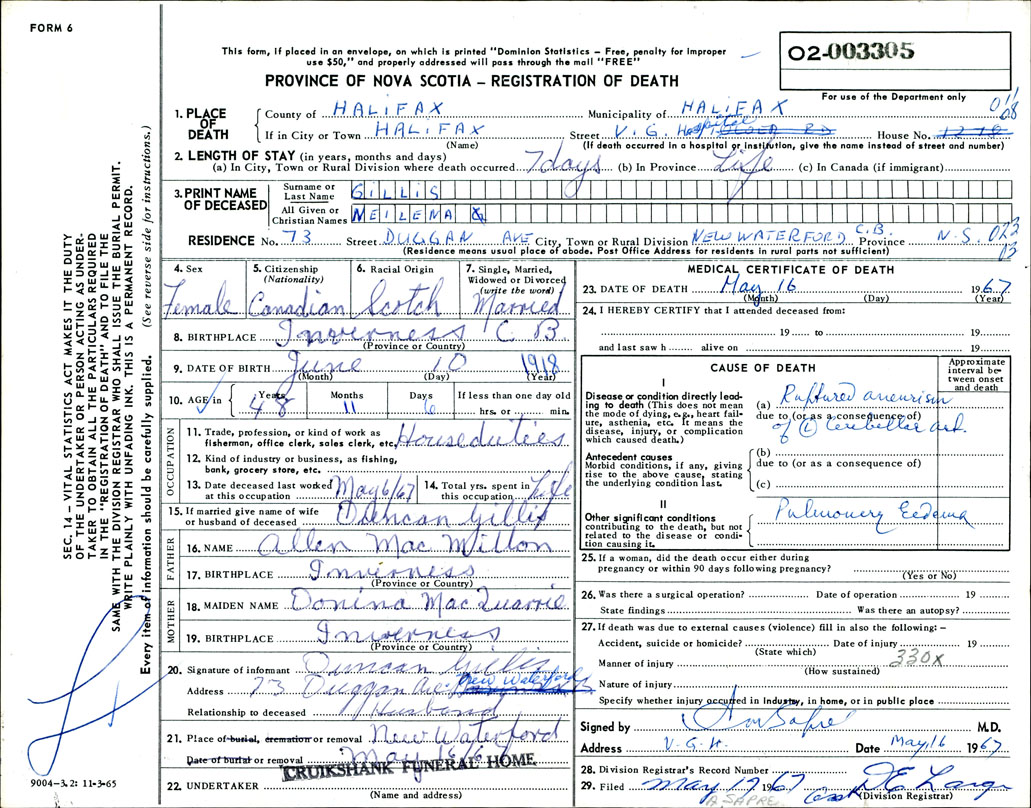 FORM 6
This form, if placed in an envelope, on which is printed "Dominion Statistics – Free, penalty for improper
use $50," and properly addressed will pass through the mail "FREE"
02-003305
PROVINCE OF NOVA SCOTIA – REGISTRATION OF DEATH
For use of the Department only
1. PLACE OF DEATH
County of HALIFAX Municipality of HALIFAX
If in City or Town HALIFAX Street V.G. Hospital House No. 1270
(Name) (If death occurred in a hospital or institution, give the name instead of street and number)
2. LENGTH OF STAY (in years, months and days)
(a) In City, Town or Rural Division where death occurred 7 days (b) In Province Life (c) In Canada (if immigrant)
3. PRINT NAME OF DECEASED
Surname or Last Name GILLIS
All Given or Christian Names NEILENA
RESIDENCE No. 73 Street DUGGAN AVE City, Town or Rural Division NEW WATERFORD C.B. Province N.S. 023
03
(Residence means usual place of abode. Post Office Address for residents in rural parts not sufficient)
4. Sex Female
5. Citizenship (Nationality) Canadian
6. Racial Origin Scotch
7. Single, Married, Widowed or Divorced (write the word) Married
8. BIRTHPLACE Inverness C B
(Province or Country)
9. DATE OF BIRTH June 10 1918
(Month) (Day) (Year)
10. AGE in Years 48 Months 11 Days 6 If less than one day old hrs. or min.
OCCUPATION
11. Trade, profession, or kind of work as fisherman, office clerk, sales clerk, etc. Houseduties
12. Kind of industry or business, as fishing, bank, grocery store, etc.
13. Date deceased last worked at this occupation May 6/67
14. Total yrs. spent in this occupation Life
15. If married give name of wife or husband of deceased Duncan Gillis
FATHER
16. NAME Allen Mac Millon
17. BIRTHPLACE Inverness
(Province or Country)
MOTHER
18. MAIDEN NAME Donina MacQuarrie
19. BIRTHPLACE Inverness
(Province or Country)
20. Signature of informant Duncan Gillis
Address 73 Duggan Ave. New Waterford
Relationship to deceased Husband
21. Place of burial, cremation or removal New Waterford
Date of burial or removal May 18/67
CRUIKSHANK FUNERAL HOME.
22. UNDERTAKER
(Name and address)
MEDICAL CERTIFICATE OF DEATH
23. DATE OF DEATH May 16 1967
(Month) (Day) (Year)
24. I HEREBY CERTIFY that I attended deceased from:
19 to 19
and last saw h alive on 19
CAUSE OF DEATH
Approximate interval between onset and death
I
Disease or condition directly leading to death (This does not mean the mode of dying, e.g., heart failure, asthenia, etc. It means the disease, injury, or complication which caused death.)
(a) Ruptured aneurism
due to (or as a consequence of)
of (L) Cerebellar art.
Antecedent causes
Morbid conditions, if any, giving rise to the above cause, stating the underlying condition last.
(b)
due to (or as a consequence of)
(c)
II
Other significant conditions contributing to the death, but not related to the disease or condition causing it.
Pulmonary Eedema
25. If a woman, did the death occur either during pregnancy or within 90 days following pregnancy?
(Yes or No)
26. Was there a surgical operation? Date of operation 19
State findings Was there an autopsy?
27. If death was due to external causes (violence) fill in also the following: –
Accident, suicide or homicide? Date of injury 19
(State which)
330X
Manner of injury
(How sustained)
Nature of injury
Specify whether injury occurred in Industry, in home, or in public place
Signed by M.D.
Address V.G.H. Date May 16 1967
28. Division Registrar's Record Number
29. Filed May 19 1967
(Division Registrar)
A SAPRE
SEC. 14 – VITAL STATISTICS ACT MAKES IT THE DUTY
OF THE UNDERTAKER OR PERSON ACTING AS UNDER-
TAKER TO OBTAIN ALL THE PARTICULARS REQUIRED
IN THE "REGISTRATION OF DEATH" AND TO FILE THE
SAME WITH THE DIVISION REGISTRAR WHO SHALL ISSUE THE BURIAL PERMIT.
WRITE PLAINLY WITH UNFADING INK. THIS IS A PERMANENT RECORD.
Every item of information should be carefully supplied. (See reverse side for instructions.)
9004–3.2: 11-3-65